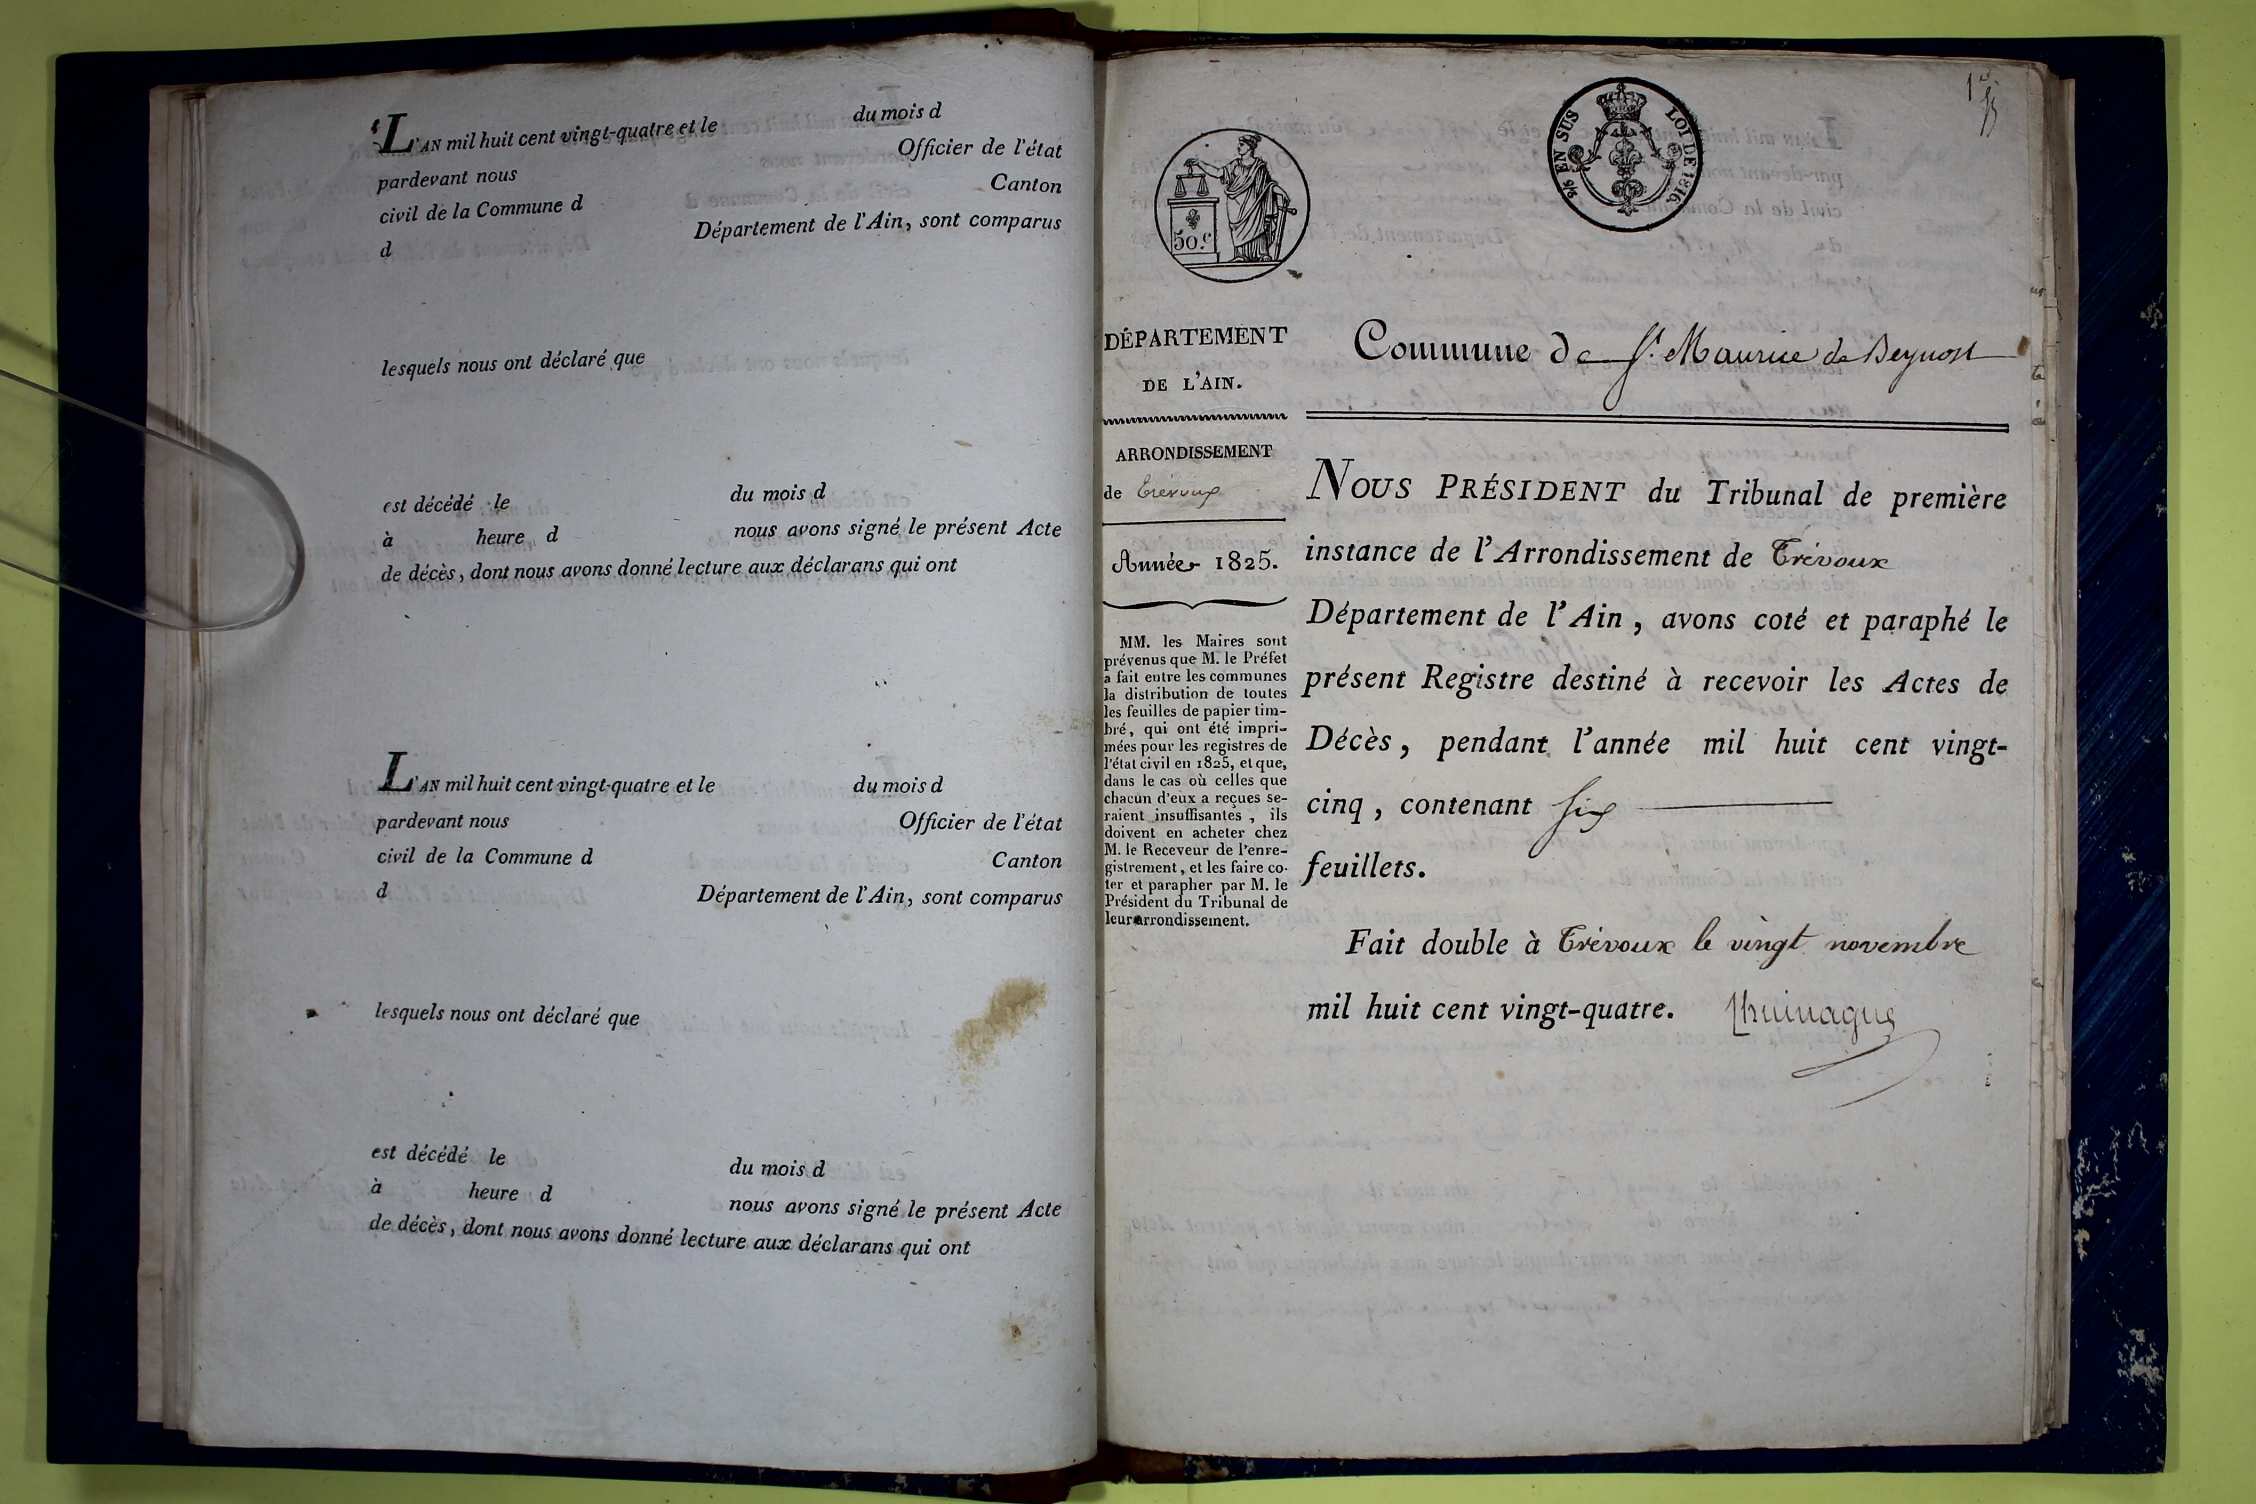 L'AN mil huit cent vingt-quatre et le du mois d
pardevant nous Officier de l'état
civil de la Commune d Canton
d Département de l'Ain, sont comparus
lesquels nous ont déclaré que
est décédé le du mois d
à heure d nous avons signé le présent Acte
de décès, dont nous avons donné lecture aux déclarans qui ont
L'AN mil huit cent vingt-quatre et le du mois d
pardevant nous Officier de l'état
civil de la Commune d Canton
d Département de l'Ain, sont comparus
lesquels nous ont déclaré que
est décédé le du mois d
à heure d nous avons signé le présent Acte
de décès, dont nous avons donné lecture aux déclarans qui ont
50.c
EN SUS LOI DE 1816.
DÉPARTEMENT
DE L'AIN.
ARRONDISSEMENT
de Trévoux
Année 1825.
MM. les Maires sont
prévenus que M. le Préfet
a fait entre les communes
la distribution de toutes
les feuilles de papier tim-
bré, qui ont été impri-
mées pour les registres de
l'état civil en 1825, et que,
dans le cas où celles que
chacun d'eux a reçues se-
raient insuffisantes, ils
doivent en acheter chez
M. le Receveur de l'enre-
gistrement, et les faire co-
ter et parapher par M. le
Président du Tribunal de
leur arrondissement.
Commune de St. Maurice de Beynost
NOUS PRÉSIDENT du Tribunal de première
instance de l'Arrondissement de Trévoux
Département de l'Ain, avons coté et paraphé le
présent Registre destiné à recevoir les Actes de
Décès, pendant l'année mil huit cent vingt-
cinq, contenant six
feuillets.
Fait double à Trévoux le vingt novembre
mil huit cent vingt-quatre.